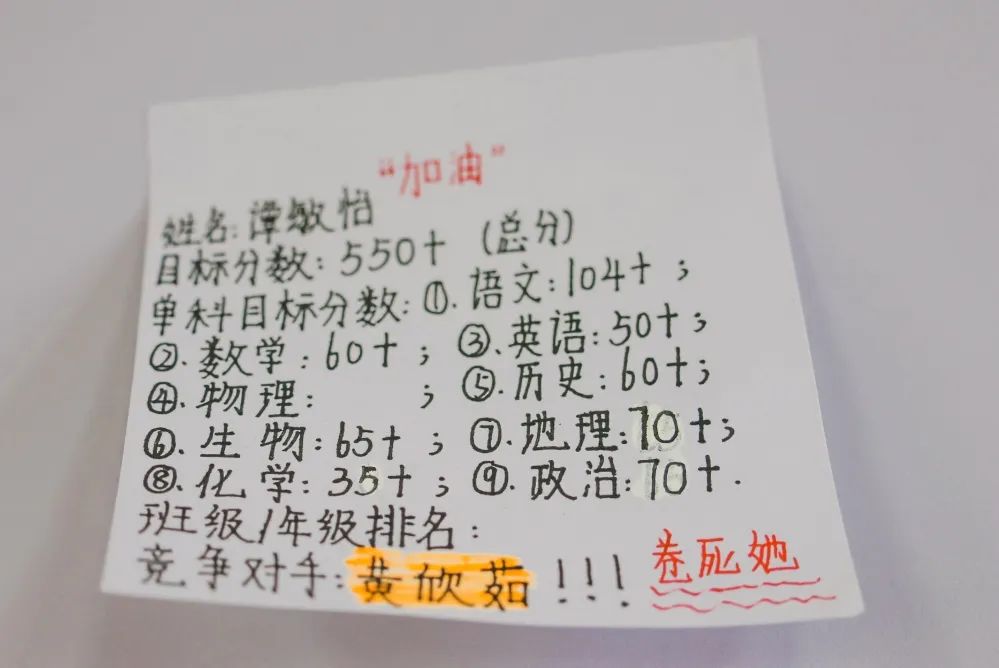 “加油”
姓名:谭敏怡
目标分数:550+ (总分)
单科目标分数:①.语文:104+;
②.数学:60+; ③.英语:50+;
④.物理: ; ⑤.历史:60+;
⑥.生物:65+; ⑦.地理:70+;
⑧.化学:35+; ⑨.政治:70+.
班级/年级排名:
竞争对手:黄欣茹!!! 卷死她